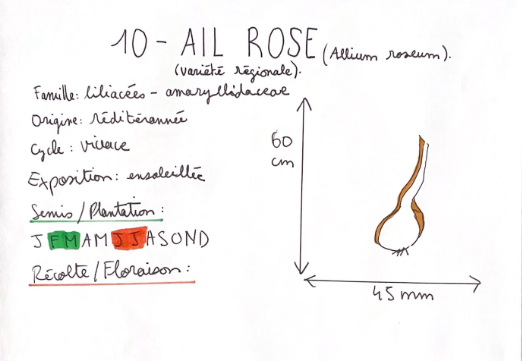 10 - AIL ROSE (Allium roseum).
(variété régionale).
Famille: liliacées - amaryllidaceae
Origine: Méditérannée
Cycle: vivace
Exposition: ensoleillée
Semis/Plantation:
J F M A M J J A S O N D
Récolte/Floraison:
60 cm
45 mm